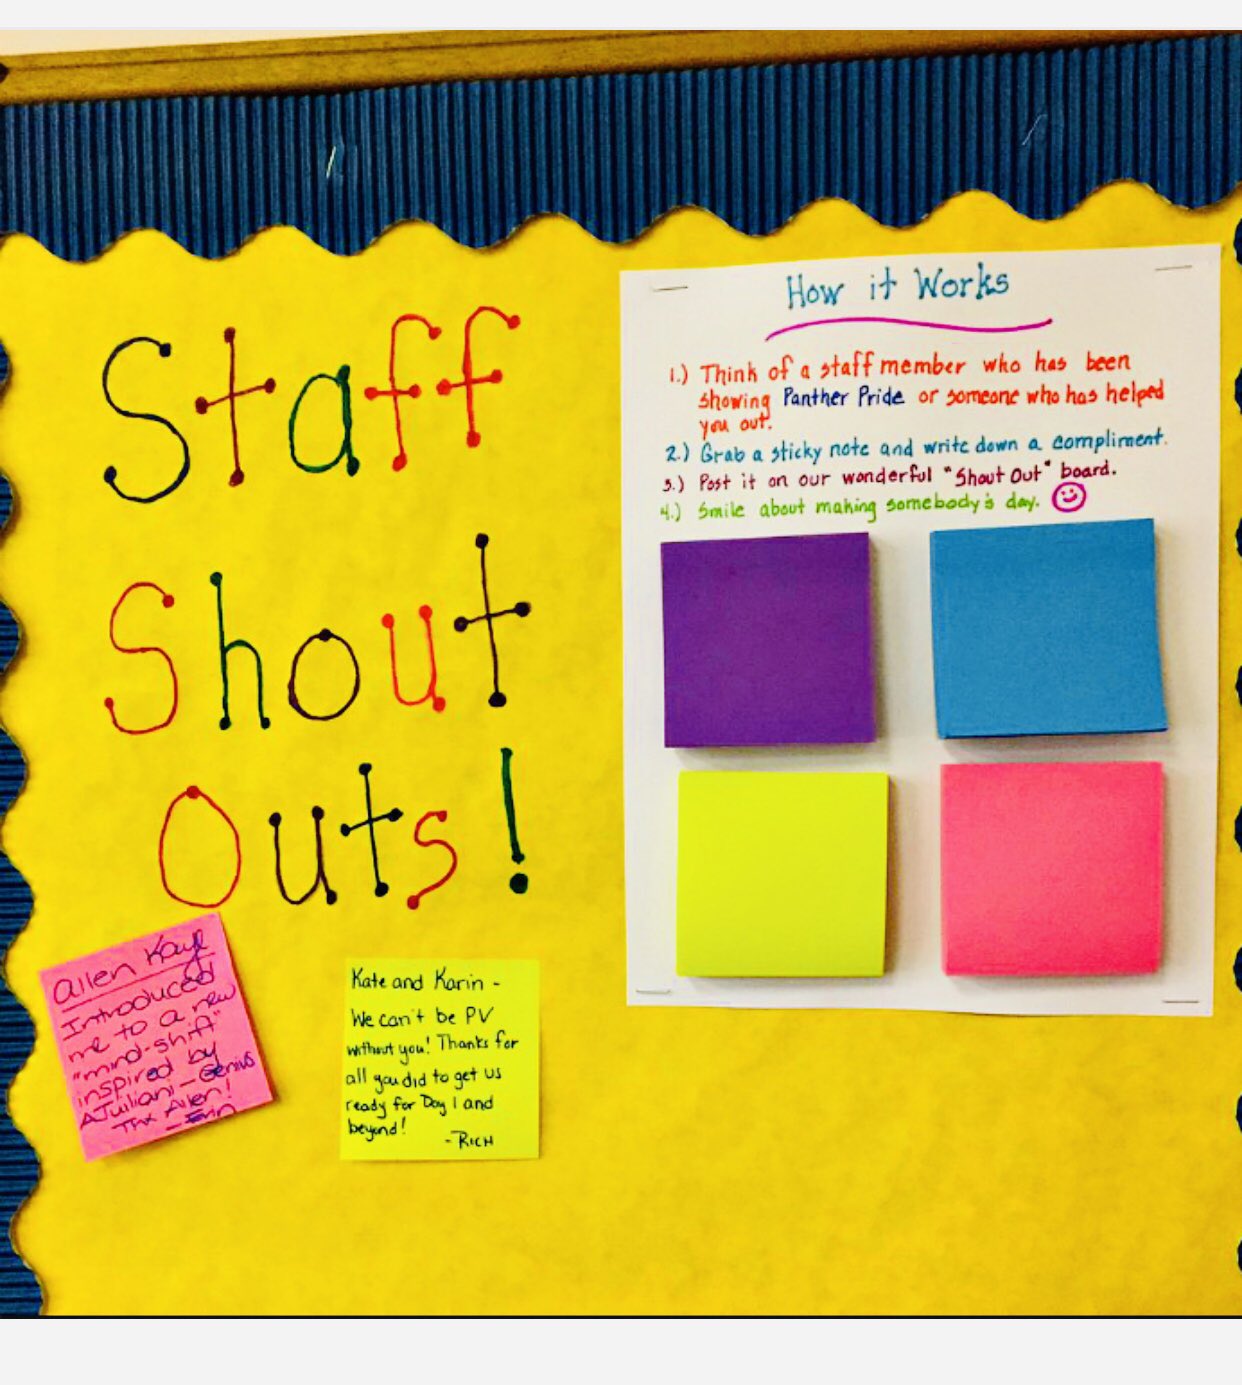 Staff
Shout
Outs!
How it Works
1.) Think of a staff member who has been
showing Panther Pride or someone who has helped
you out.
2.) Grab a sticky note and write down a compliment.
3.) Post it on our wonderful "Shout Out" board.
4.) Smile about making somebody's day.
Allen Kayl
Introduced
me to a new
"mind-shift"
inspired by
AJuiliani - Genius
Thx Allen!
- Erin
Kate and Karin -
We can't be PV
without you! Thanks for
all you did to get us
ready for Day 1 and
beyond!
- RICH